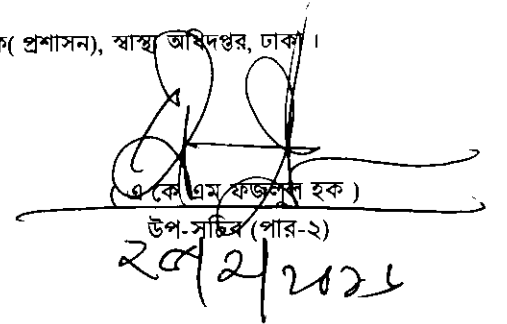 ক( প্রশাসন), স্বাস্থ্য অধিদপ্তর, ঢাকা ।
( এ কে এম ফজলুল হক )
উপ-সচিব (পার-২)